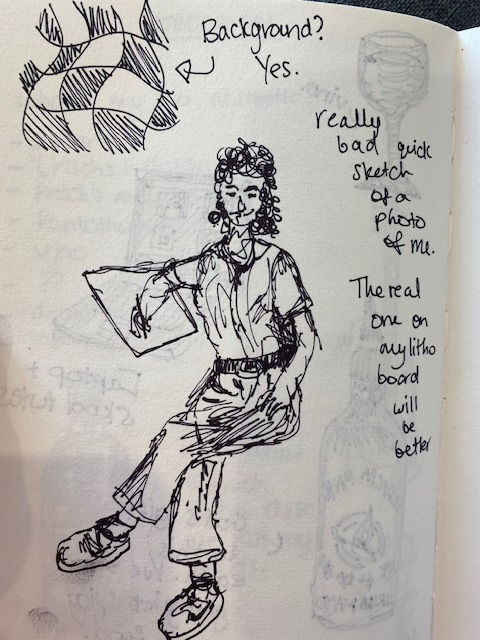 Background?
Yes.
really
bad quick
sketch
of a
photo
of me.
The real
one on
my litho
board
will
be
better
Laptop +